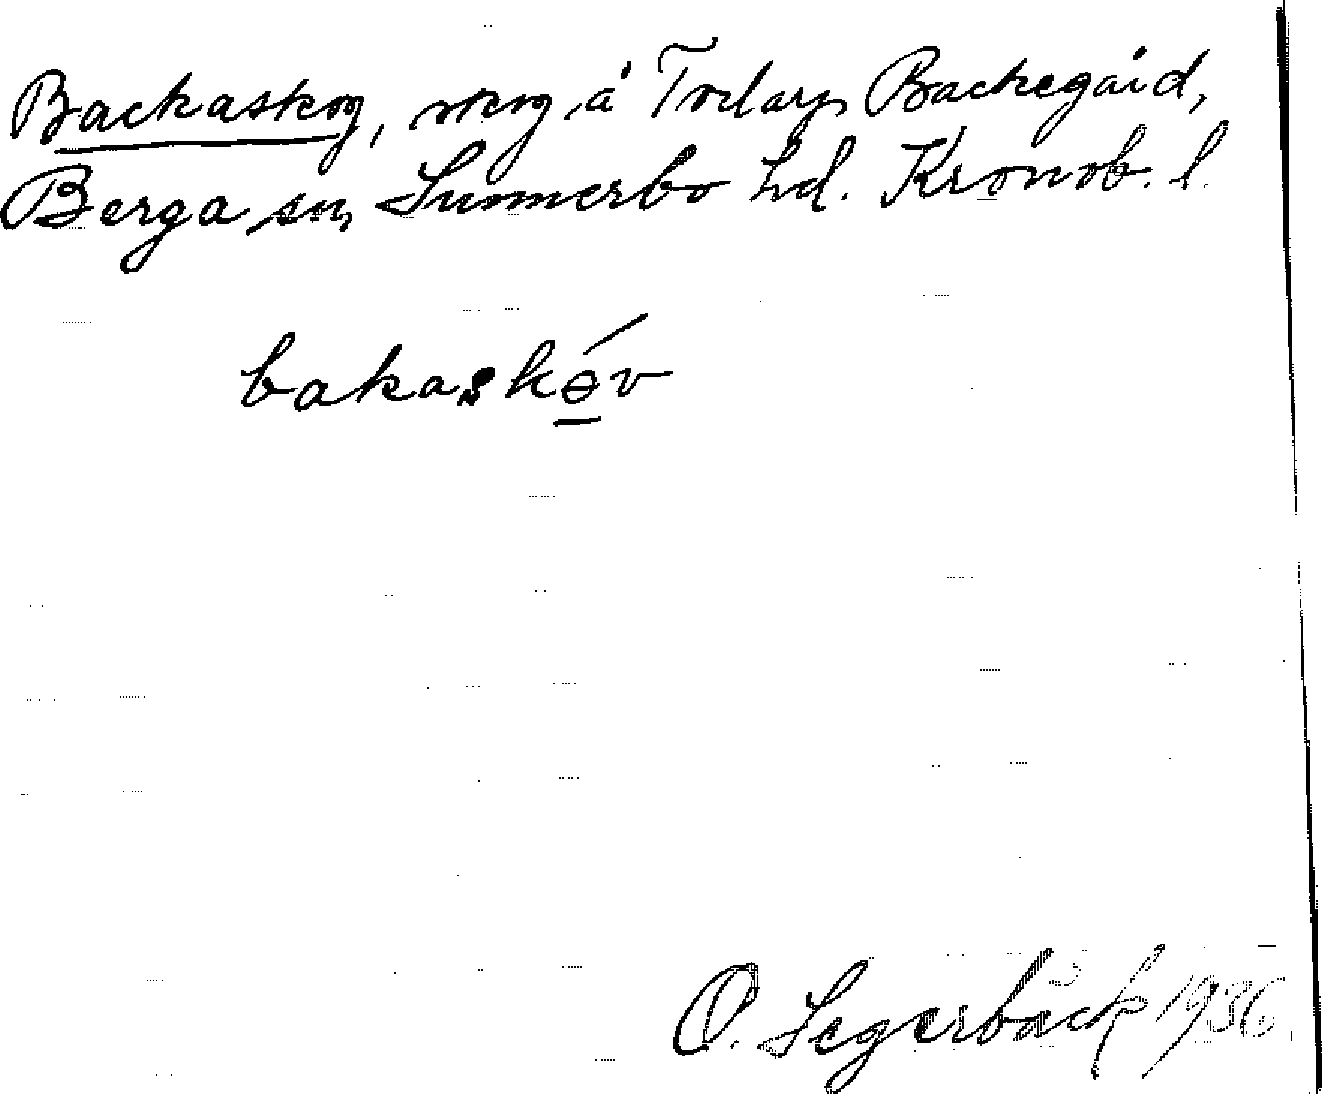 Backaskog, skog å Torlarp Backegård,
Berga sn, Sunnerbo hd. Kronob. l.
bakaskóv
O. Segerbäck 1936